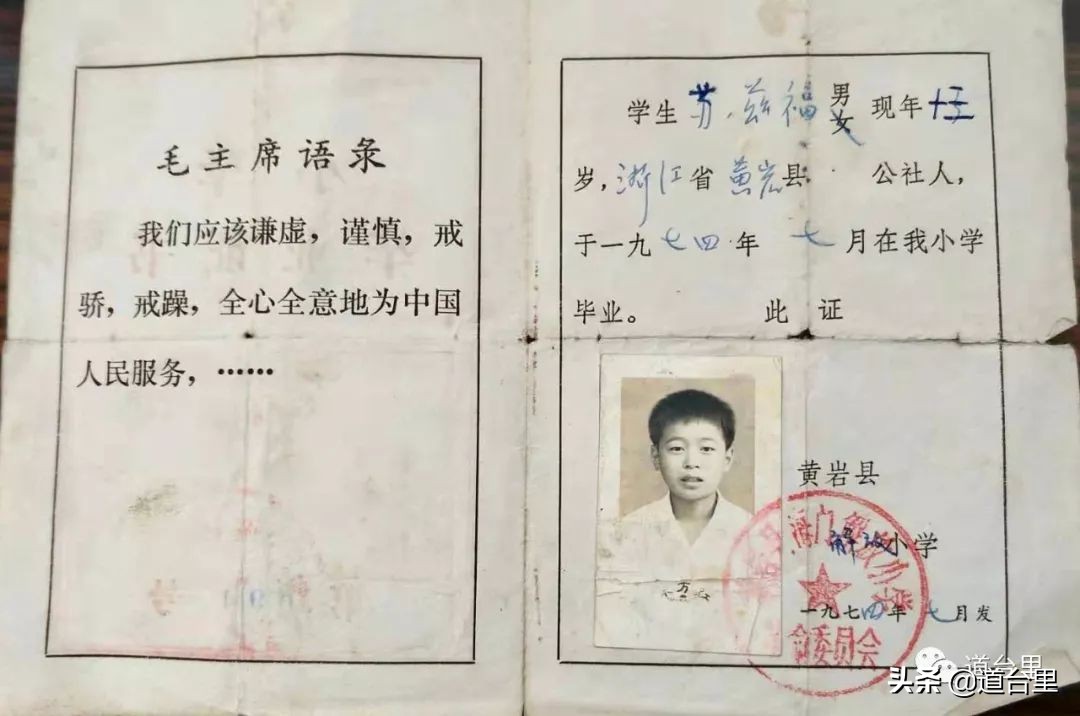 毛主席语录
我们应该谦虚，谨慎，戒
骄，戒躁，全心全意地为中国
人民服务，……
学生苏兹福男女现年十三
岁，浙江省黄岩县 公社人，
于一九七四年 七月在我小学
毕业。 此证
黄岩县
解放小学
一九七四年七月发
海门解放小学
委员会
道台里
头条 @道台里